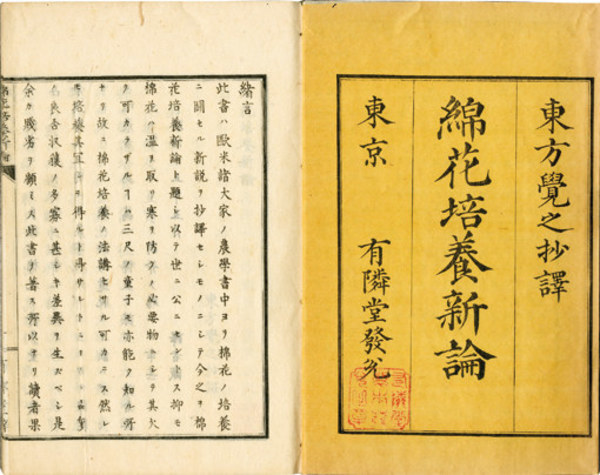 東方覺之抄譯
綿花培養新論
東京 有隣堂發兌
緒言
此書ハ歐米諸大家ノ農學書中ヨリ棉花ノ培養
ニ關セル新説ヲ抄譯セシモノニシテ今之ヲ棉
花培養新論ト題シ以テ世ニ公ニセントス抑モ
棉花ハ温ヲ取リ寒ヲ防クノ必要物ニシテ其欠
ク可カラザルヿハ三尺ノ童子モ亦能ク知ル所
ナリ故ニ棉花培養ノ法講セサル可カラス然レ
培養其宜シキヲ得ルト得サルト
良否收穫ノ多寡ニ甚シキ差異ヲ生スベシ是
余カ賤劣ヲ顧ミス此書ヲ著ス所以ナリ讀者果